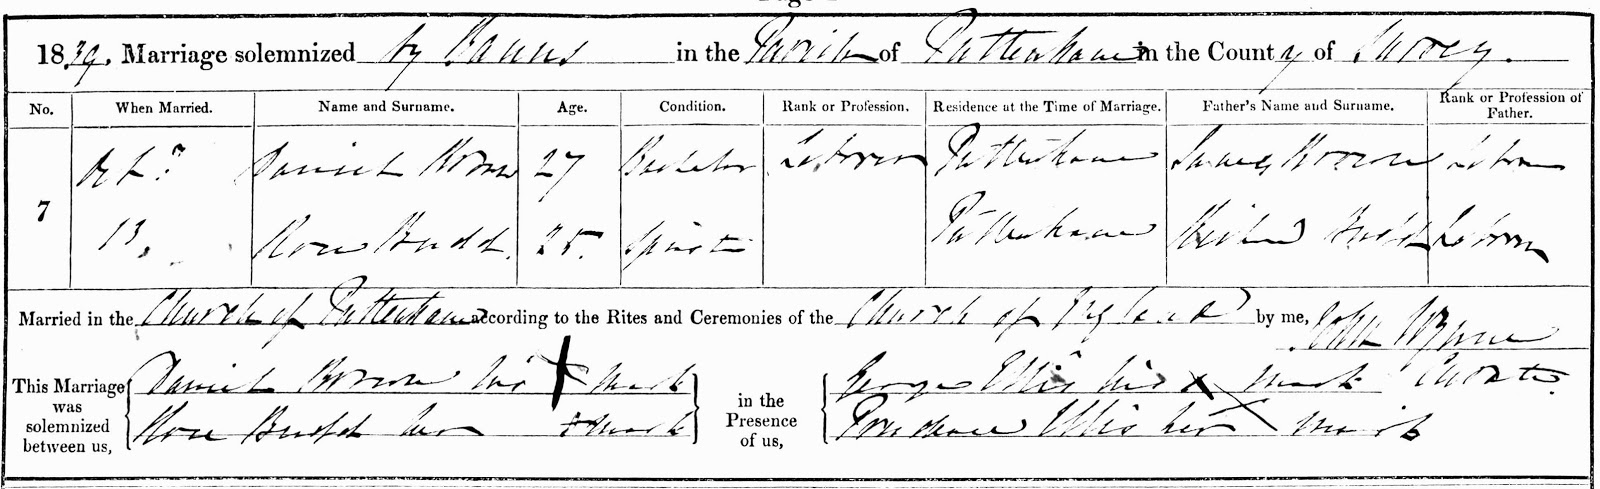 1839. Marriage solemnized by Banns in the Parish of Puttenham in the County of Surrey.
No. When Married. Name and Surname. Age. Condition. Rank or Profession. Residence at the Time of Marriage. Father's Name and Surname. Rank or Profession of Father.
Oct.r Daniel Brown 27 Bachelor Laborer Puttenham James Brown Laborer
7
13. Rose Budd. 25. Spinster Puttenham Richard Budd Laborer
Married in the Church of Puttenham according to the Rites and Ceremonies of the Church of England by me, John Wynne
Curate.
This Marriage was solemnized between us,
Daniel Brown his X mark
Rose Budd her X mark
in the Presence of us,
George Ellis his X mark
Prudence Ellis her X mark